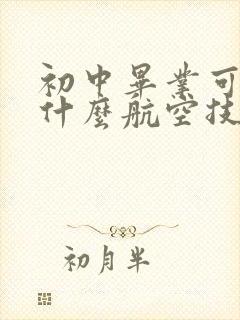 初中畢業可
什麼航空技
初月半